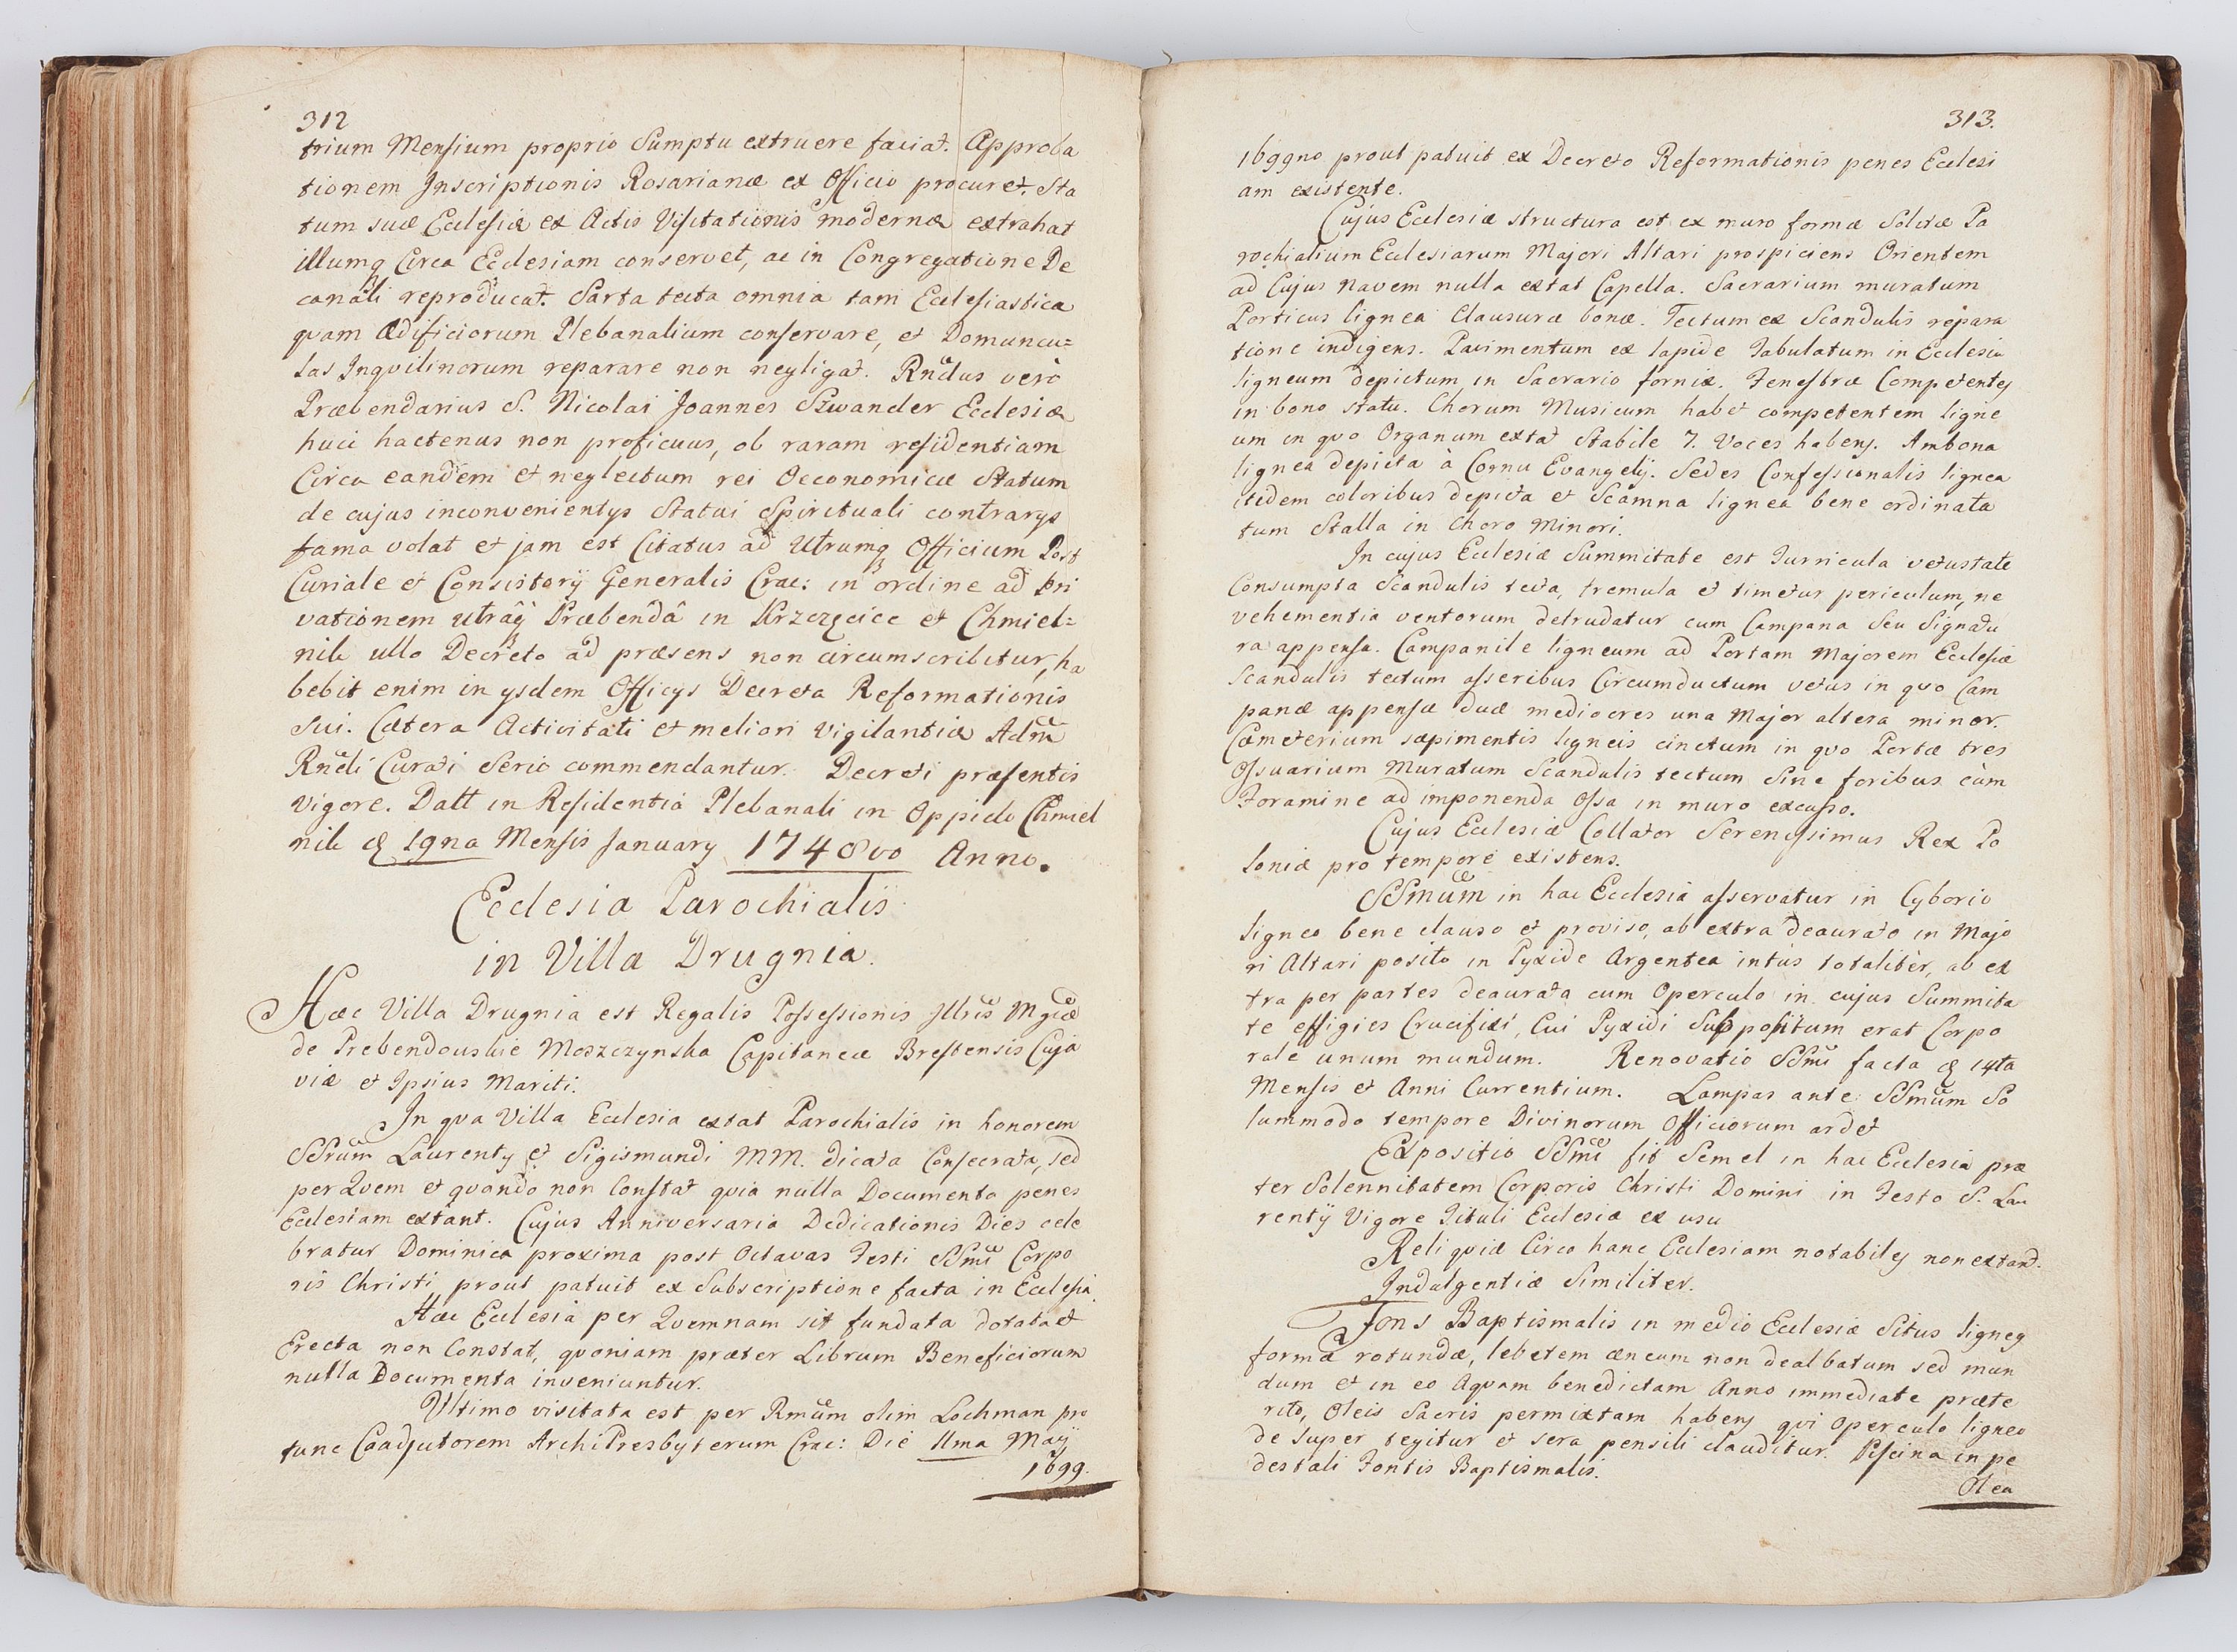 312
trium Mensium proprio Sumptu extruere faciat. Approba
tionem Inscriptionis Rosarianæ ex Officio procuret. Sta
tum suæ Ecclesiæ ex Actis Visitationis modernæ extrahat
illumq Circa Ecclesiam conservet, ac in Congregatione De
canali reproducat. Sarta tecta omnia tam Ecclesiastica
quam Ædificiorum Plebanalium conservare, et Domuncu=
las Inqvilinorum reparare non negligat. Rndus verò
Præbendarius S. Nicolai Joannes Szwander Ecclesiæ
huic hactenus non proficuus, ob raram residentiam
Circa eandem et neglectum rei Oeconomicæ Statum
de cujus inconvenientys Statui Spirituali contrarys
fama volat et jam est Citatus ad Utrumq Officium Post
Curiale et Consistorij Generalis Crac: in ordine ad pri
vationem utrâq Præbendâ in Krzczęcice et Chmiel=
nik ullo Decreto ad præsens non circumscribitur, ha
bebit enim in ysdem Officys Decreta Reformationis
sui. Cætera Activitati et meliori vigilantiæ Adm
Rndi Curati Serio commendantur. Decreti præsentis
vigore. Datt in Residentia Plebanali in Oppido Chmiel
nik d 19na Mensis January 1748vo Anno.
Ecclesia Parochialis
in Villa Drugnia.
Hæc Villa Drugnia est Regalis Possessionis Illris Mgcæ
de Prebendouskie Moszczynska Capitaneæ Brestensis Cuja
viæ et Ipsius Mariti.
In qva Villa Ecclesia extat Parochialis in honorem
SSrum Laurenty et Sigismundi MM. dicata Consecrata, sed
per Qvem et qvando non Constat qvia nulla Documenta penes
Ecclesiam extant. Cujus Anniversaria Dedicationis Dies cele
bratur Dominica proxima post Octavas Festi SSmi Corpo
ris Christi prout patuit ex Subscriptione facta in Ecclesia.
Hæc Ecclesia per Qvemnam sit fundata dotata et
Erecta non Constat, qvoniam præter Librum Beneficiorum
nulla Documenta inveniuntur.
Ultimo visitata est per Rmum olim Lochman pro
tunc Coadjutorem ArchiPresbyterum Crac: Die 11ma Maij
1699.
313.
1699no prout patuit ex Decreto Reformationis penes Ecclesi
am existente.
Cujus Ecclesiæ structura est ex muro formæ Solitæ Pa
rochialium Ecclesiarum Majori Altari prospiciens Orientem
ad Cujus Navem nulla extat Capella. Sacrarium muratum
Porticus lignea Clausuræ bonæ. Tectum ex Scandulis repara
tione indigens. Pavimentum ex lapide Tabulatum in Ecclesia
ligneum depictum in Sacrario fornix. Fenestræ Competentes
in bono statu. Chorum Musicum habet competentem ligne
um in qvo Organum extat Stabile 7. Voces habens. Ambona
lignea depicta à Cornu Evangelij. Sedes Confessionalis lignea
itidem coloribus depicta et Scamna lignea bene ordinata
tum Stalla in Choro Minori.
In cujus Ecclesiæ Summitate est Turricula vetustate
Consumpta Scandulis tecta, tremula et timetur periculum, ne
vehementia ventorum detrudatur cum Campana Seu Signatu
ra appensa. Campanile ligneum ad Portam Majorem Ecclesiæ
Scandulis tectum asseribus Circumductum vetus in qvo Cam
panæ appensæ duæ mediocres una Major altera minor.
Cæmeterium sæpimentis ligneis cinctum in qvo Portæ tres
Ossuarium Muratum Scandulis tectum Sine foribus cùm
Foramine ad imponenda Ossa in muro excusso.
Cujus Ecclesiæ Collator Serenissimus Rex Po
loniæ pro tempore existens.
SSmum in hac Ecclesia asservatur in Cyborio
ligneo bene clauso et proviso, ab extra deaurato in Majo
ri Altari posito in Pyxide Argentea intùs totalitèr, ab ex
tra per partes deaurata cum Operculo in cujus Summita
te effigies Crucifixi, Cui Pyxidi Suppositum erat Corpo
rale unum mundum. Renovatio SSmi facta d 14ta
Mensis et Anni Currentium. Lampas ante SSmum So
lummodo tempore Divinorum Officiorum ardet
Expositio SSmi fit Semel in hac Ecclesia præ
ter Solennitatem Corporis Christi Domini in Festo S. Lau
rentij Vigore Tituli Ecclesiæ ex usu
Reliqviæ Circa hanc Ecclesiam notabiles non extant.
Indulgentiæ Similiter.
Fons Baptismalis in medio Ecclesiæ Situs ligneus
formæ rotundæ, lebetem æneum non dealbatum sed mun
dum et in eo Aqvam benedictam Anno immediate præte
rito, Oleis Sacris permixtam habens qvi Operculo ligneo
de super tegitur et sera pensili clauditur. Piscina in pe
destali Fontis Baptismalis.
Olea